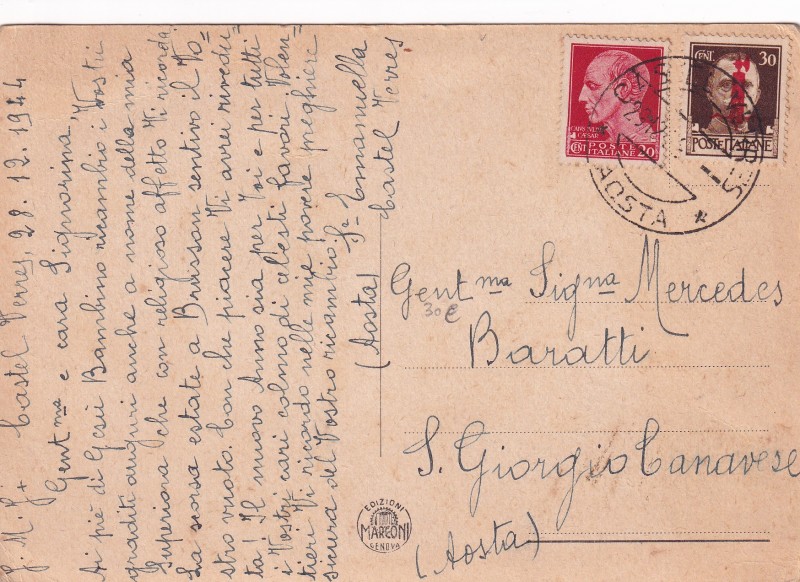 J. M. J. + Castel Verres, 28.12.1944
Gent.ma e cara Signorina,
Ai piè di Gesù Bambino ricambio i Vostri
graditi auguri anche a nome della mia
Superiora che con religioso affetto Vi ricorda.
La scorsa estate a Brusson sentivo il Vo-
stro vuoto. Con che piacere Vi avrei rivedu-
ta! Il nuovo Anno sia per Voi e per tutti
i Vostri cari colmo di celesti favori. Volen-
tieri Vi ricordo nelle mie povere preghiere
sicura del Vostro ricambio.
Sr Emanuella
Castel Verres
(Aosta)
CENT. 30
POSTE ITALIANE
CAIVS IVLIVS
CAESAR
POSTE
ITALIANE
CENT 20
AOSTA
Gent.ma Sig.na Mercedes
30 €
Baratti
S. Giorgio Canavese
(Aosta)
EDIZIONI
MARCONI
GENOVA